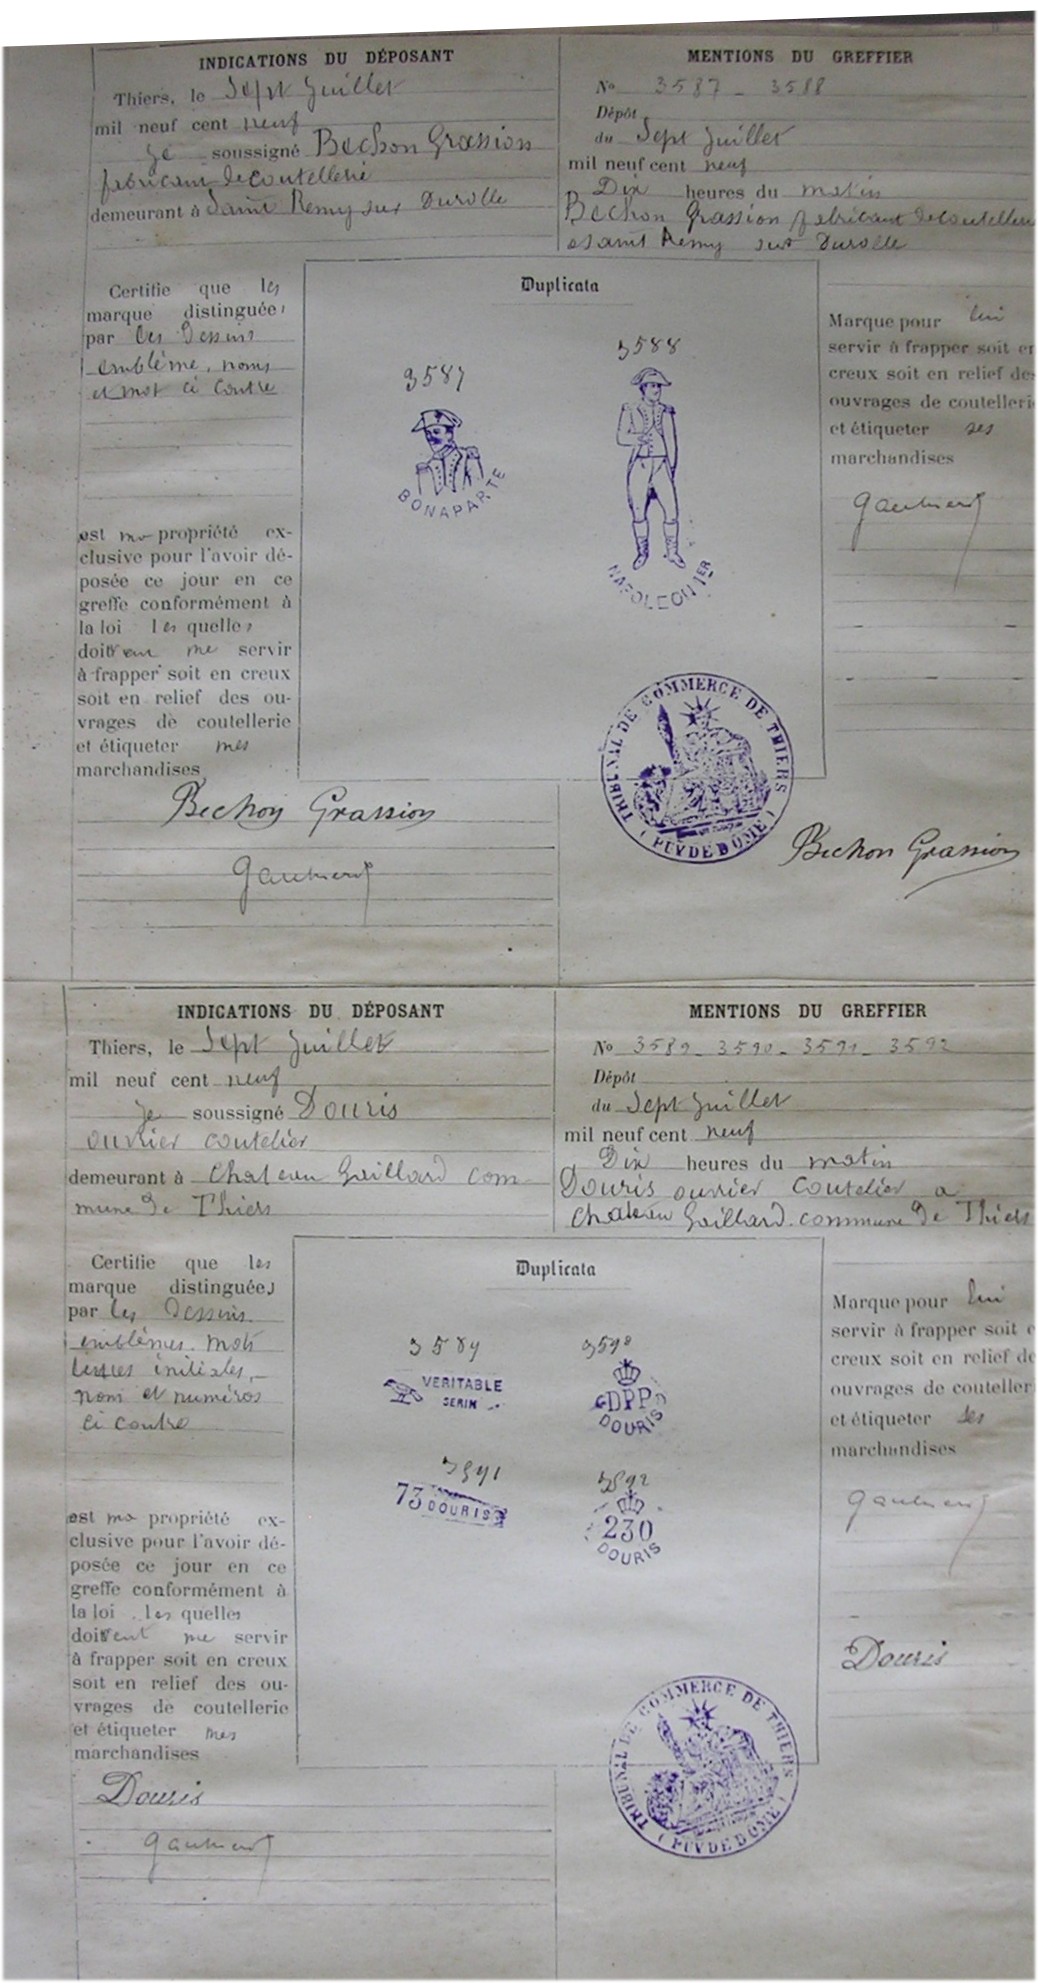 INDICATIONS DU DÉPOSANT
Thiers, le Sept Juillet
mil neuf cent neuf
Je soussigné Bechon Grassion
fabricant de coutellerie
demeurant à Saint Remy sur Durolle
Certifie que les
marque distinguées
par les dessins
emblème, noms
et mot ci contre
est ma propriété ex-
clusive pour l'avoir dé-
posée ce jour en ce
greffe conformément à
la loi les quelles
doivent me servir
à frapper soit en creux
soit en relief des ou-
vrages de coutellerie
et étiqueter mes
marchandises
Bechon Grassion
MENTIONS DU GREFFIER
No 3587 - 3588
Dépôt
du Sept Juillet
mil neuf cent neuf
Dix heures du matin
Bechon Grassion fabricant de coutellerie
a Saint Remy sur Durolle
Duplicata
3587
BONAPARTE
3588
NAPOLEON 1ER
TRIBUNAL DE COMMERCE DE THIERS
(PUY DE DOME)
Marque pour lui
servir à frapper soit en
creux soit en relief des
ouvrages de coutellerie
et étiqueter ses
marchandises
Bechon Grassion
INDICATIONS DU DÉPOSANT
Thiers, le Sept Juillet
mil neuf cent neuf
Je soussigné Douris
ouvrier coutelier
demeurant à Chateau Gaillard com-
mune de Thiers
Certifie que les
marque distinguées
par les dessins
emblèmes. mots
lettres initiales,
nom et numéros
ci contre
est ma propriété ex-
clusive pour l'avoir dé-
posée ce jour en ce
greffe conformément à
la loi les quelles
doivent me servir
à frapper soit en creux
soit en relief des ou-
vrages de coutellerie
et étiqueter mes
marchandises
Douris
MENTIONS DU GREFFIER
No 3589 - 3590 - 3591 - 3592
Dépôt
du Sept Juillet
mil neuf cent neuf
Dix heures du matin
Douris ouvrier coutelier a
Chateau Gaillard. commune de Thiers
Duplicata
3589
VERITABLE
SERIN
3590
DPP
DOURIS
3591
73 DOURIS
3592
230
DOURIS
TRIBUNAL DE COMMERCE DE THIERS
(PUY DE DOME)
Marque pour lui
servir à frapper soit e
creux soit en relief de
ouvrages de couteller
et étiqueter ses
marchandises
Douris